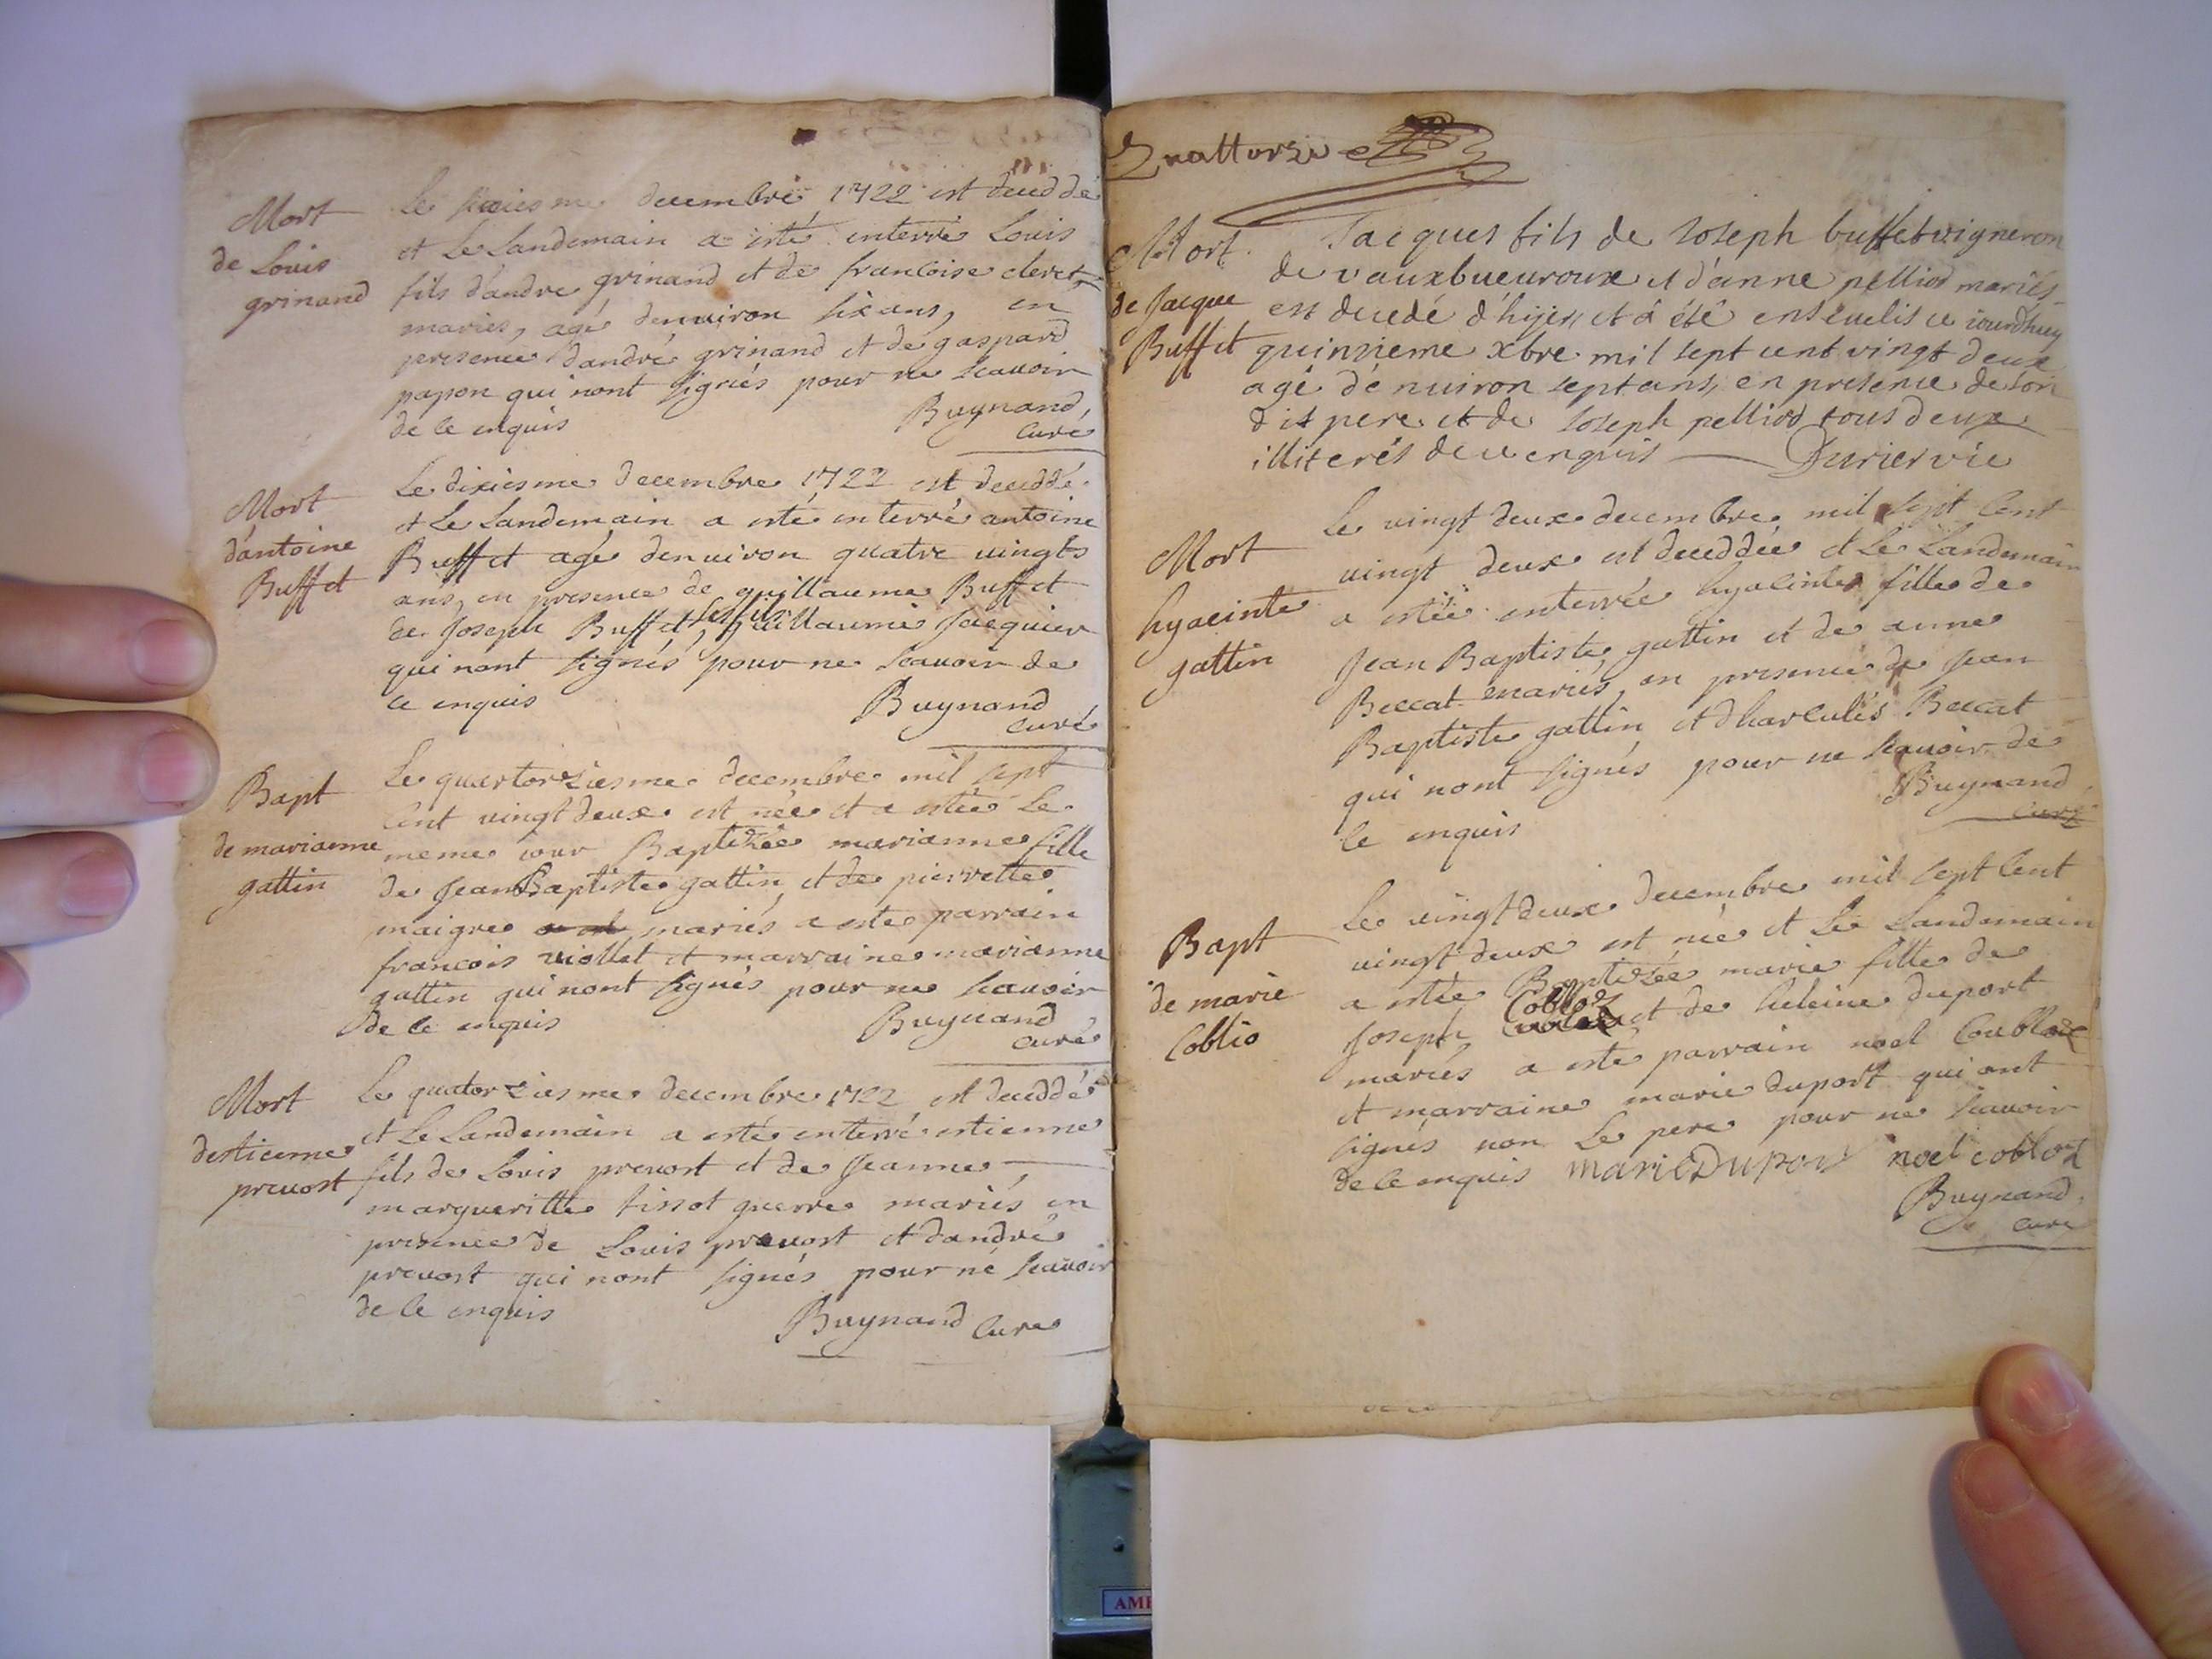 Mort
de Louis
grinand
Le decembre 1722 est deceddé
et Le Landemain a esté enterré Louis
fils dandre grinand et de francoise cleret
mariés, agé denuiron six ans, en
presence dandré grinand et de gaspard
papon qui nont signés pour ne scauoir
de ce enquis
Buynand,
curé
Mort
dantoine
Buffet
Le dixiesme decembre 1722 est deceddé
et Le Landemain a esté enterré antoine
Buffet agé denuiron quatre uingts
ans, en presence de guillaume Buffet
de Joseph Buffet ses fils, guillaume Jacquier
qui nont signés pour ne scauoir de
ce enquis
Buynand
curé
Bapt
de marianne
gattin
Le quartorziesme decembre mil sept
cent uingt deux est née et a estée Le
meme iour Baptizée marianne fille
de Jean Baptiste gattin et de pierrette
maigre mariés a este parrain
francois uiollet et marraine marianne
gattin qui nont signés pour ne scauoir
de ce enquis
Buynand
curé
Mort
destienne
preuost
Le quatorziesme decembre 1722 est deceddé
et Le Landemain a esté enterré estienne
fils de Louis preuost et de Jeanne
margueritte tissot guerre mariés en
presence de Louis preuost et dandré
preuost qui nont signés pour ne scauoir
de ce enquis
Buynand curé
Quattorze
Mort
de Jacque
Buffet
Jacques fils de Joseph buffet vigneron
de vauxbueuroux et d'anne pelliod mariés
est decedé d'hijer et â été enseuelis ce iourdhuy
quinzieme xbre mil sept cent vingt deux
agé dénuiron sept ans, en presence de son
dit pere et de Joseph pelliod tous deux
illiterés de ce enquis Durier vic
Mort
hyacinte
gattin
Le vingt deux decembre mil sept cent
uingt deux est deceddée et Le Landemain
a estée enterrée hyacinte fille de
Jean Baptiste gattin et de anne
Beccat mariés, en presence de Jean
Baptiste gattin et dharculés Beccat
qui nont signés pour ne scauoir de
ce enquis
Buynand
curé
Bapt
de marie
Coblio
Le uingt deux decembre mil sept cent
uingt deux est née et Le Landemain
a estée Baptizée marie fille de
Joseph Cobloz et de heleine duport
mariés a esté parrain noel Coubloz
et marraine marie duport qui ont
signés non Le pere pour ne scauoir
de ce enquis marie Duport noel cobloz
Buynand
curé